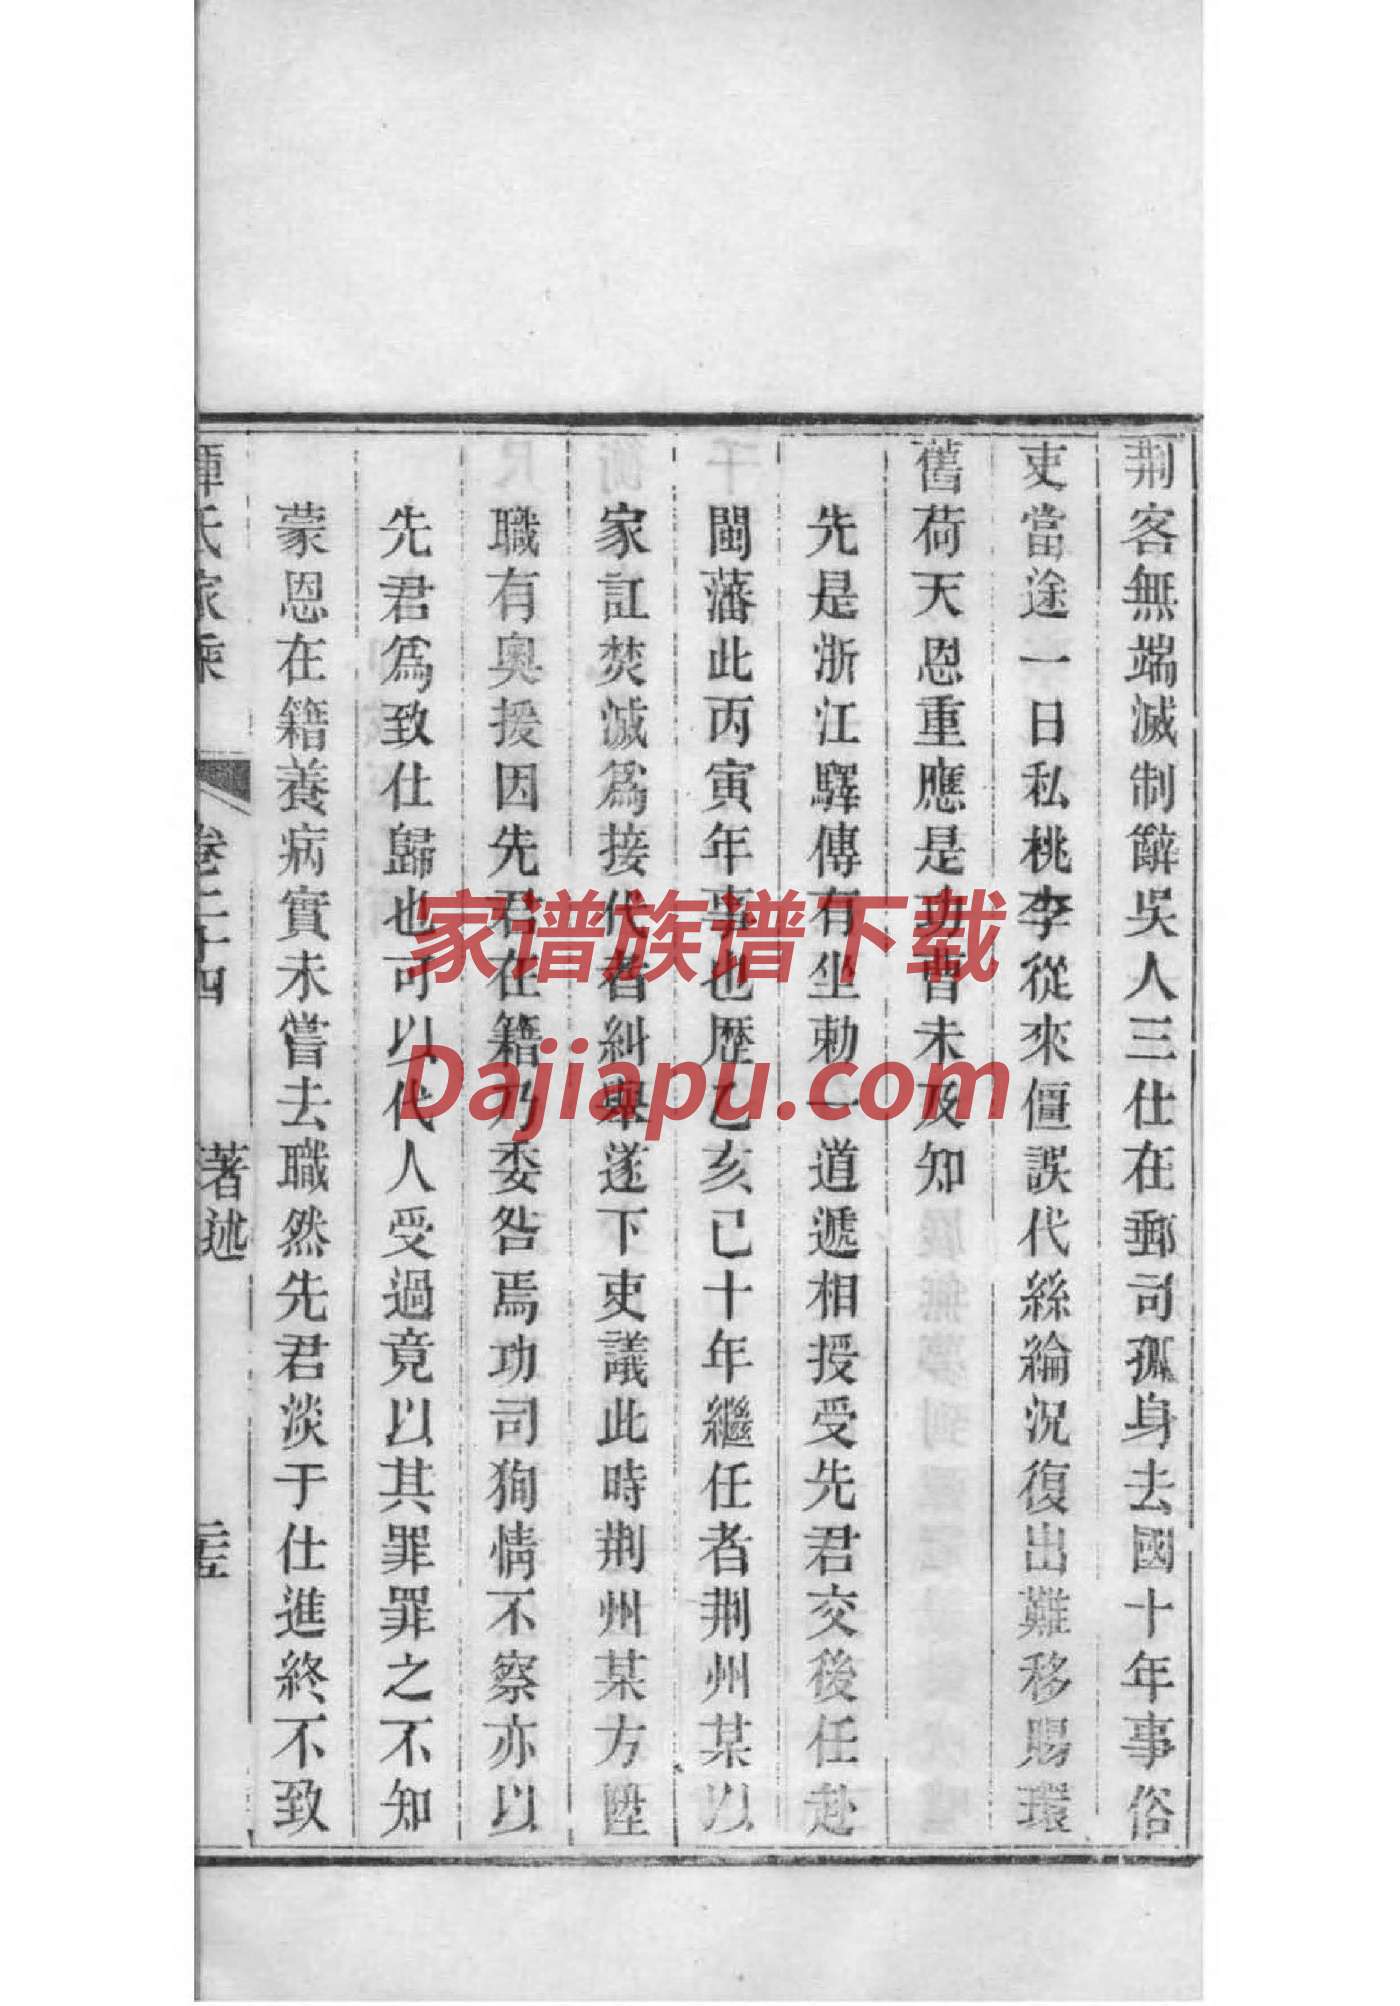 荆客無端滅制辭吳人三仕在郵司孤身去國十年事俗
吏當途一日私桃李從來僵誤代絲綸況復出難移賜環
舊荷天恩重應是功曹未及知
先是浙江驛傳有坐勅一道遞相授受先君交後任赴
閩藩此丙寅年事也歷乙亥已十年繼任者荆州某以
家訌焚滅爲接代者糾舉遂下吏議此時荆州某方陞
職有奥援因先君在籍乃委咎焉功司狥情不察亦以
先君爲致仕歸也可以代人受過竟以其罪罪之不知
蒙恩在籍養病實未嘗去職然先君淡于仕進終不致
氏家乘 卷二十四 著述
家谱族谱下载
Dajiapu.com